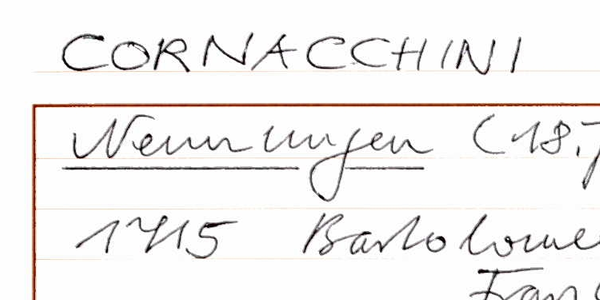 CORNACCHINI
Nennungen (18.
1715 Bartolome
Fran